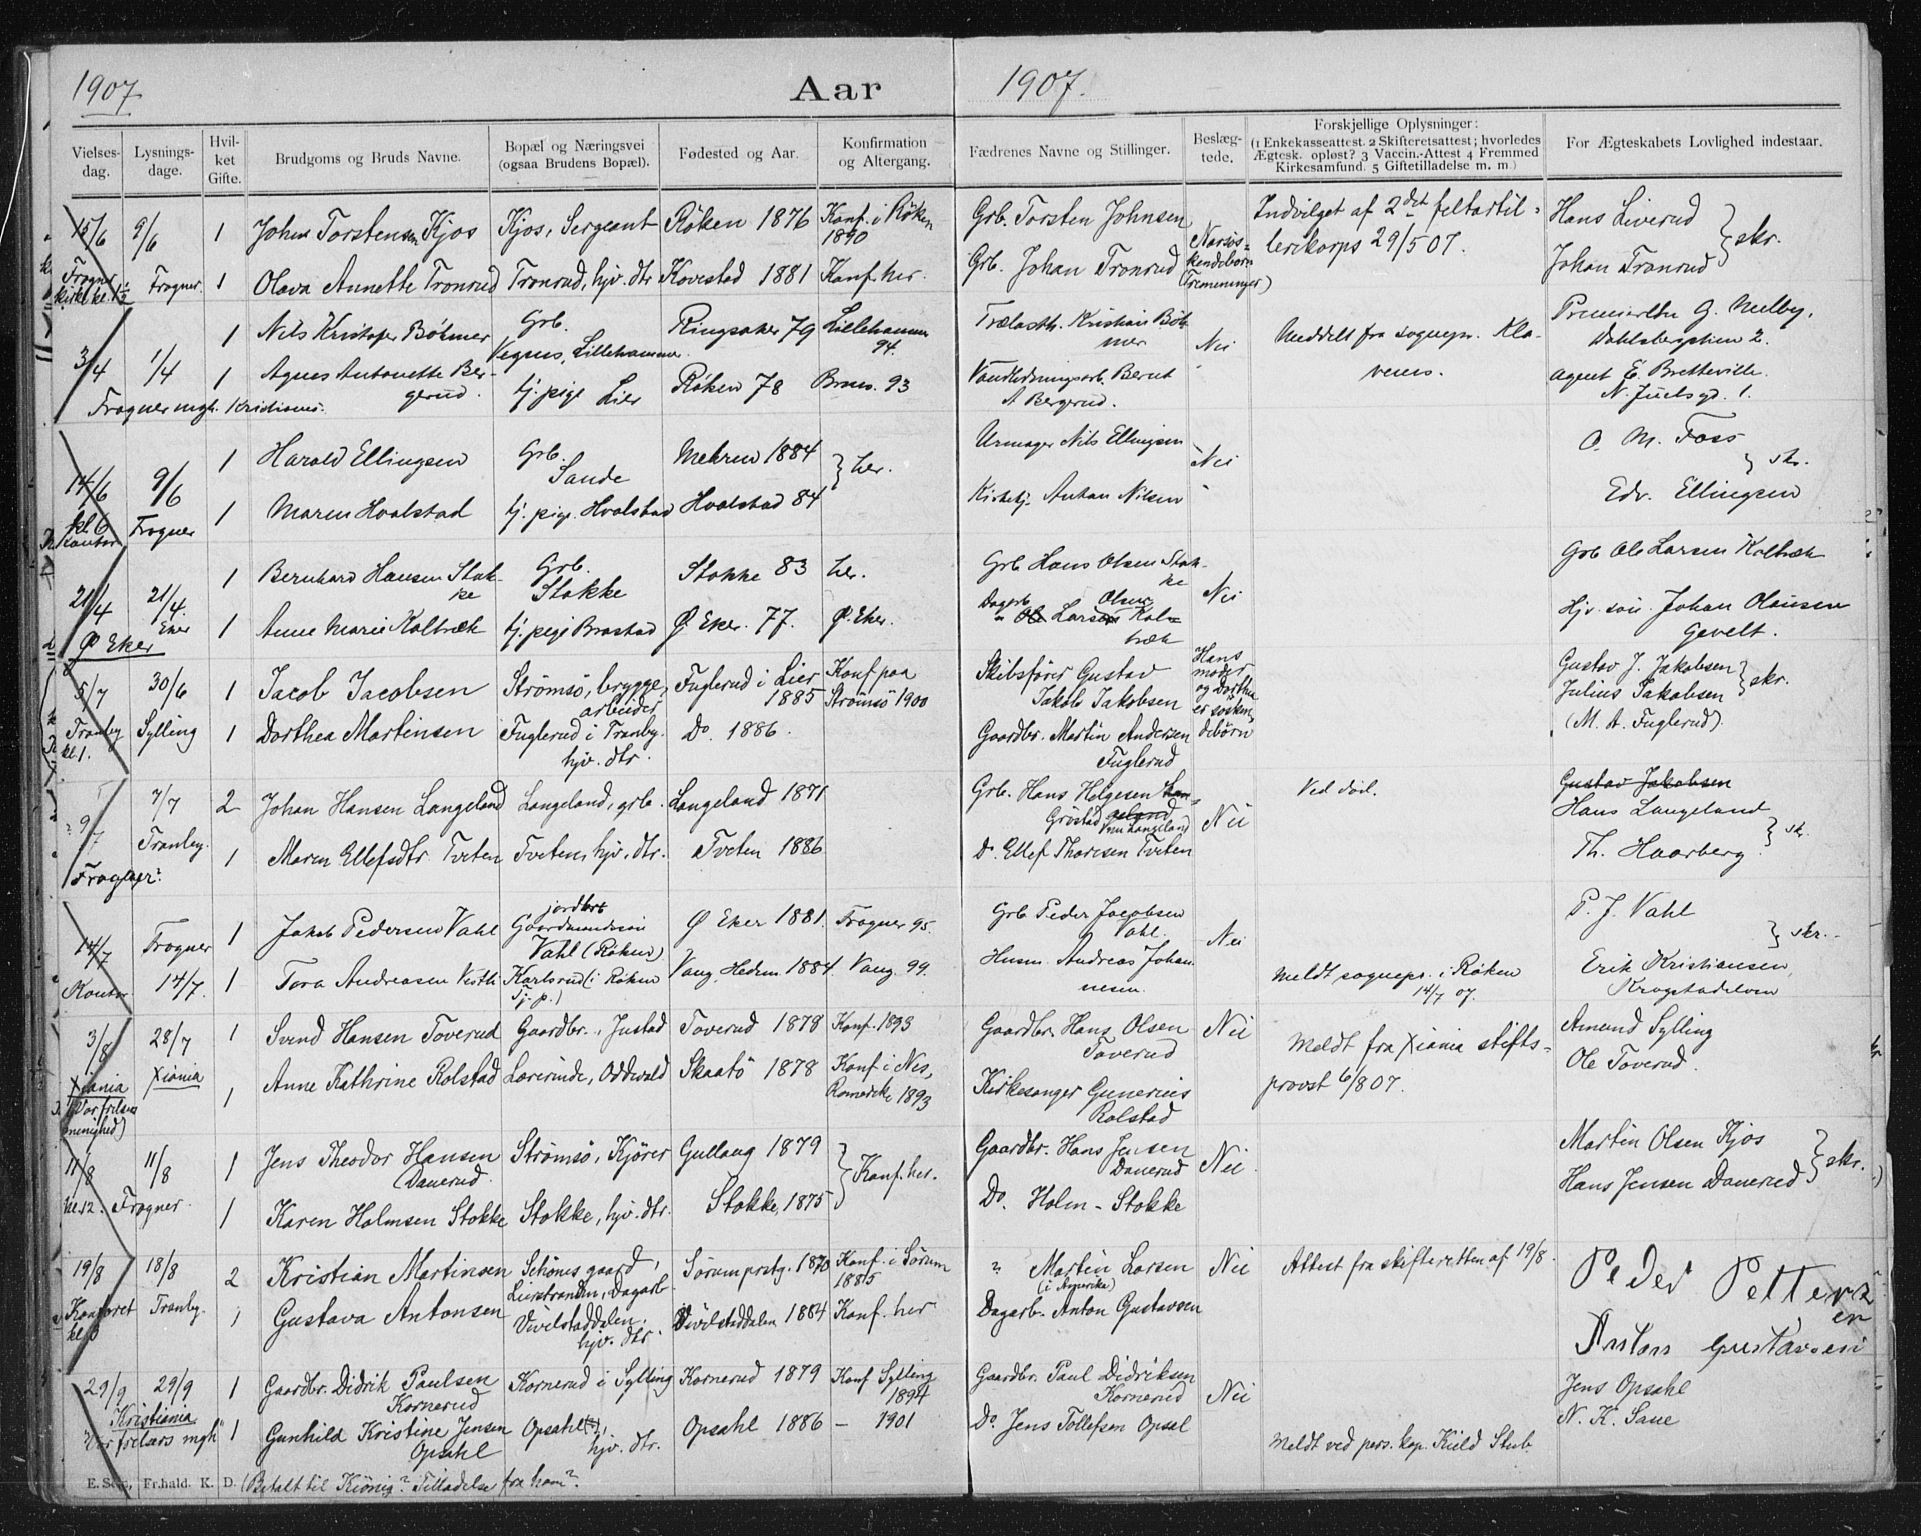 1907
Aar
1907.
Vielses-dag.
Lysnings-dage.
Hvil-ket Gifte.
Brudgoms og Bruds Navne.
Bopæl og Næringsvei (ogsaa Brudens Bopæl).
Fødested og Aar.
Konfirmation og Altergang.
Fædrenes Navne og Stillinger.
Beslæg-tede.
Forskjellige Oplysninger:
(1 Enkekasseattest. 2 Skifteretsattest; hvorledes
Ægtesk. opløst? 3 Vaccin.-Attest 4 Fremmed
Kirkesamfund. 5 Giftetilladelse m. m.)
For Ægteskabets Lovlighed indestaar.
15/6 9/6 1 Johan Torstensen Kjos Kjos, Sergeant Røken 1876 Konf. i Røken 1890
Grb. Torsten Johnsen
Indvilget af 2det feltartil-
lerikorps 29/5 07.
Hans Liverud
Frogner kirke kl. 1½ Frogner. 1 Olava Annette Tronrud Tronrud, hjv. dtr Kovestad 1881 Konf. her.
Grb. Johan Tronrud
Næsøs-
kendebørn
(Tremeninger)
Johan Tronrud } skr.
3/4 1/4 1 Nils Kristofer Böhmer Grb. Vegnes, Lillehammer. Ringsaker 79 Lillehammer 94.
Trælasth. Kristian Böh-
mer
Nei
Meddelt fra sognepr. Kla-
venes.
Premierltn G. Melby,
Dahlsbergstien 2.
1 Agnes Antonette Ber-
gerud. tj. pige Lier Røken 78 Bram. 93
Vandledningsarb. Bernt
A Bergerud.
agent E. Bretteville
N. Juelsgd. 1.
Frogner mgh. Kristiania.
14/6 9/6 1 Harald Ellingsen Grb. Sande Mehren 1884 } her.
Urmager Nils Ellingsen
Nei
O. M. Foss
} skr.
kl. 6 Kontor Frogner 1 Maren Hvalstad tj. pige Hvalstad Hvalstad 84
Kirketj. Anton Nilsen
Edv. Ellingsen
21/4 21/4 1 Bernhard Hansen Stok-
ke Grb. Stokke Stokke 83 her.
Grb Hans Olsen Stok-
ke
Nei
Grb Ole Larsen Koltræk
Ø Eker Eker 1 Anne Marie Koltræk tj. pige Brastad Ø. Eker. 77. Ø. Eker.
Dagarb. Ole Larsen Olsen Kol-
træk
Hjv. søn Johan Olausen
Gevelt.
5/7 30/6 1 Jacob Jacobsen Strømsø, brygge-
arbeider Fuglerud i Lier 1885 Konf paa Strømsø 1900
Skibsfører Gustav
Jakob Jakobsen
Hans
moder
og Dorthea
er søsken-
debørn
Gustav J. Jakobsen
Julius Jakobsen } skr.
(M. A. Fuglerud).
Tranby kl. 1. Sylling 1 Dorthea Martinsen Fuglerud i Tranby.
hjv. dtr. Do. 1886.
Gaardbr. Martin Andersen
Fuglerud
9/7 7/7 2 Johan Hansen Langeland Langeland, grb. Langeland 1871
Grb. Hans Helgesen Lan-
geland
Grøstad (nu Langeland)
Nei
Ved död.
Gustav Jakobsen
Hans Langeland
} sk.
Frogner? Tranby. 1 Maren Ellefsdtr. Tveten Tveten, hjv. dtr. Tveten 1886
Do. Ellef Thoresen Tveten
Th. Haarberg
14/7 Frogner 1 Jakob Pedersen Vahl jordbr Gaardmandssøn
Vahl (Røken) Ø Eker 1881. Frogner 95.
Grb Peder Jacobsen
Vahl.
Nei
P. J. Vahl
} skr.
Kontor 14/7. 1 Tora Andreasen Vestli Karlsrud (i Røken
Tj. p.) Vang, Hedem. 1884. Vang. 99.
Husm. Andreas Johan
nesen.
Meldt sognepr. i Røken
14/7 07.
Erik Kristiansen,
Krogstadelven
3/8 28/7 1 Svend Hansen Toverud Gaardbr., Justad Toverud 1878 Konf. 1893
Gaardbr. Hans Olsen
Toverud
Nei
Meldt fra Xiania stifts-
provst 6/8 07.
Amund Sylling
Ole Toverud.
Xiania (Vor frelsers menighed) Xiania 1 Anne Kathrine Rolstad Lærerinde, Oddevald Skaatö 1878 Konf i Nes, Romerike 1893
Kirkesanger Gunerius
Rolstad
11/8 11/8 1 Jens Theodor Hansen
Danerud. Strømsø, Kjører Gullaug 1879 } Konf. her.
Gaardbr. Hans Jensen
Danerud
Nei
Martin Olsen Kjos
Hans Jensen Danerud } skr.
kl. 12. Frogner. 1 Karen Holmsen Stokke Stokke, hjv. dtr. Stokke, 1875
Do. Holm - Stokke
19/8 18/8 2 Kristian Martinsen Schönes gaard,
Lierstranden, Dagarb. Sørum prstg. 1870 Konf. i Sørum 1885
" Martin Larsen
(i Amerika)
Nei
Attest fra skifteretten af 19/8.
Peder Petters
en
Kontoret Tranby. 1 Gustava Antonsen Vivelstaddalen.
hjv. dtr. Vivelstaddalen 1884 Konf. her
Dagarb. Anton Gustavsen
Anton Gustavsen
29/9 29/9 1 Gaardbr. Didrik Paulsen
Kornerud Kornerud i Sylling Kornerud 1879 Konf Sylling 1894
Gaardbr. Paul Didriksen
Kornerud
Nei
Jens Opsahl
Kristiania Vor frelsers mgh 1 Gunhild Kristine Jensen
Opsahl Opsahl (?), hjv. dtr. Opsahl 1886 — 1901
Do. Jens Tollefsen Opsal
Meldt ved pers. kap. Kield Stub.
N. K. Saue
E. Sem, Fr.hald. K. D. (Betalt til Kiönig? Tilladelse fra ham?